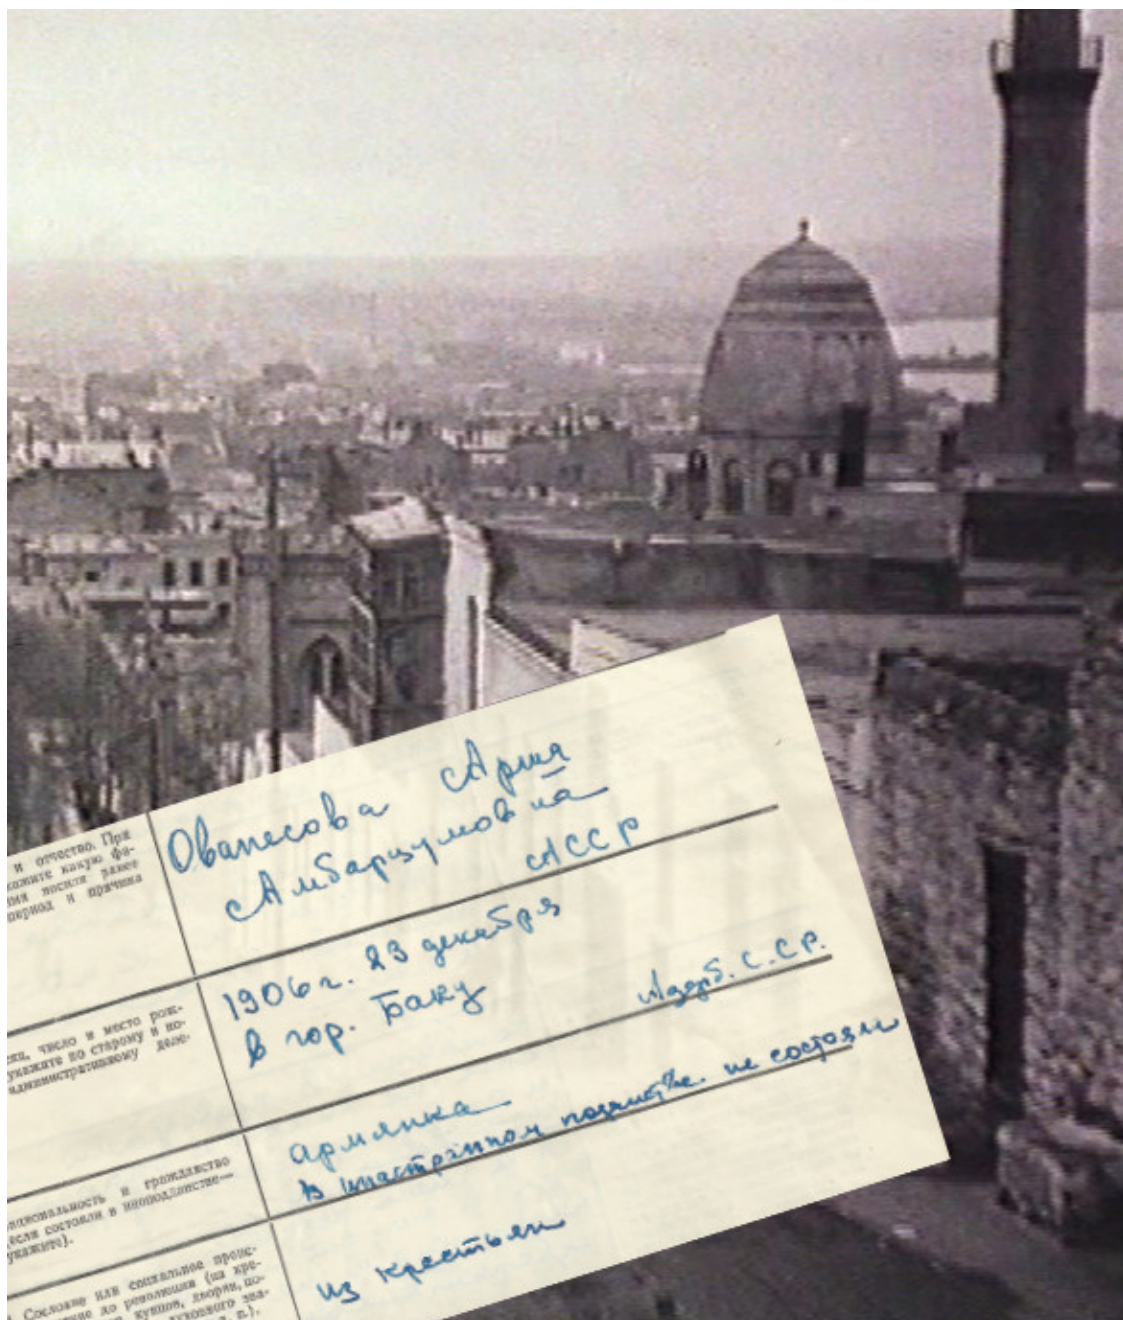 и отчество. При
кажите какую фа-
мия носили ранее
период и причина
Ованесова Ария
Амбарцумовна
АССР
сяц, число и место рож-
укажите по старому и но-
административному деле-
1906 г. 23 декабря
в гор. Баку Азерб. С.С.Р.
циональность и гражданство
если состояли в иноподданстве—
укажите).
армянка
в иностранном не состояли
Сословие или социальное проис-
ение до революции (из кре-
купцов, дворян, по-
духовного зва-
п.).
из крестьян